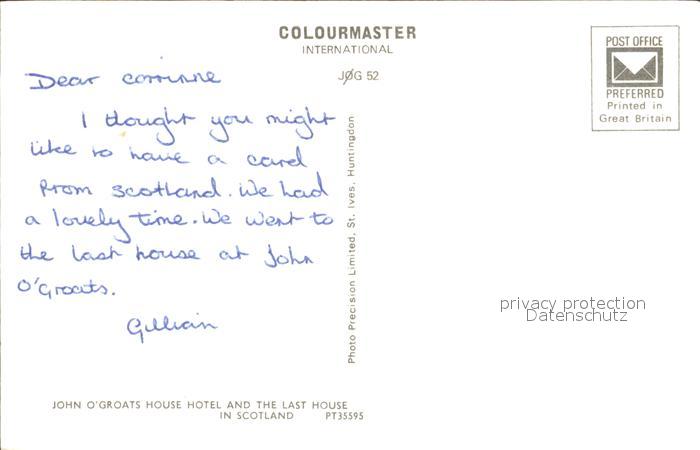 COLOURMASTER
INTERNATIONAL
JØG 52
POST OFFICE
PREFERRED
Printed in
Great Britain
Dear corrinne
I thought you might
like to have a card
from scotland. We had
a lovely time. We went to
the last house at John
O'Groats.
Gillian
Photo Precision Limited, St. Ives, Huntingdon
privacy protection
Datenschutz
JOHN O'GROATS HOUSE HOTEL AND THE LAST HOUSE
IN SCOTLAND PT35595